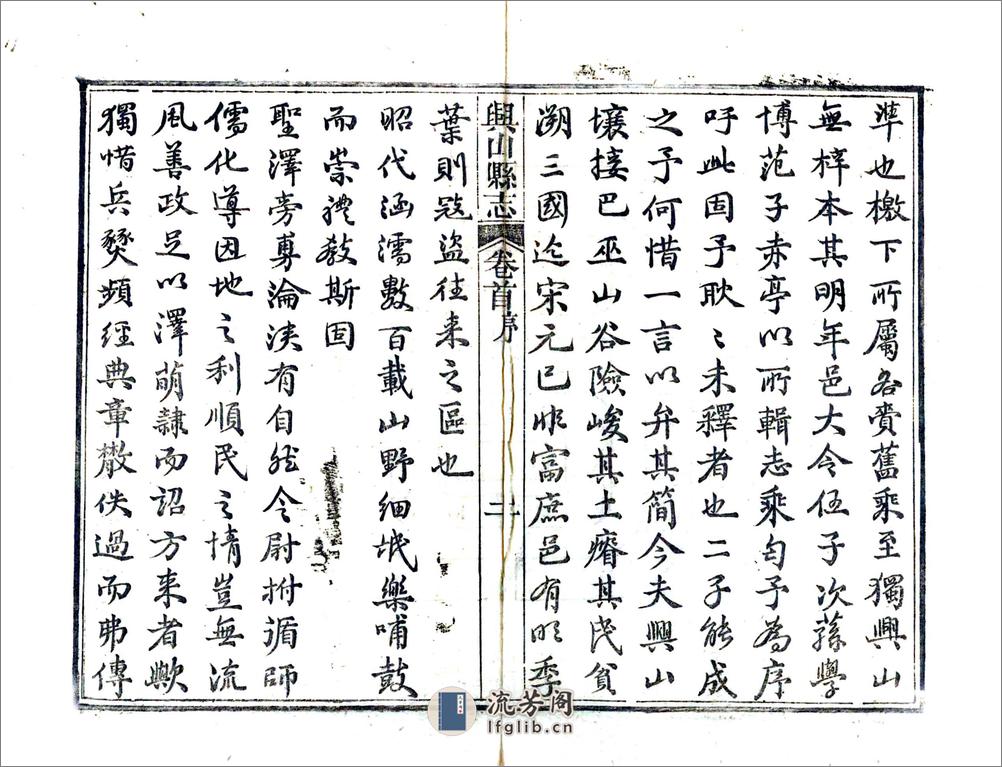 準也檄下所屬各賫舊乘至獨興山
無梓本其明年邑大令伍子次蓀學
博范子赤亭以所輯志乘匄予為序
吁此固予耿〻未釋者也二子能成
之予何惜一言以弁其簡今夫興山
壤接巴巫山谷險峻其土瘠其民貧
溯三國迄宋元已非富庶邑有明季
興山縣志
卷首序
二
葉則寇盜往来之區也
昭代涵濡數百載山野細氓樂哺鼓
而崇禮教斯固
聖澤旁尃淪浹有自然令尉拊循師
儒化導因地之利順民之情豈無流
風善政足以澤萌隷而詔方来者歟
獨惜兵燹頻經典章散佚過而弗傳
流芳阁
lfglib.cn